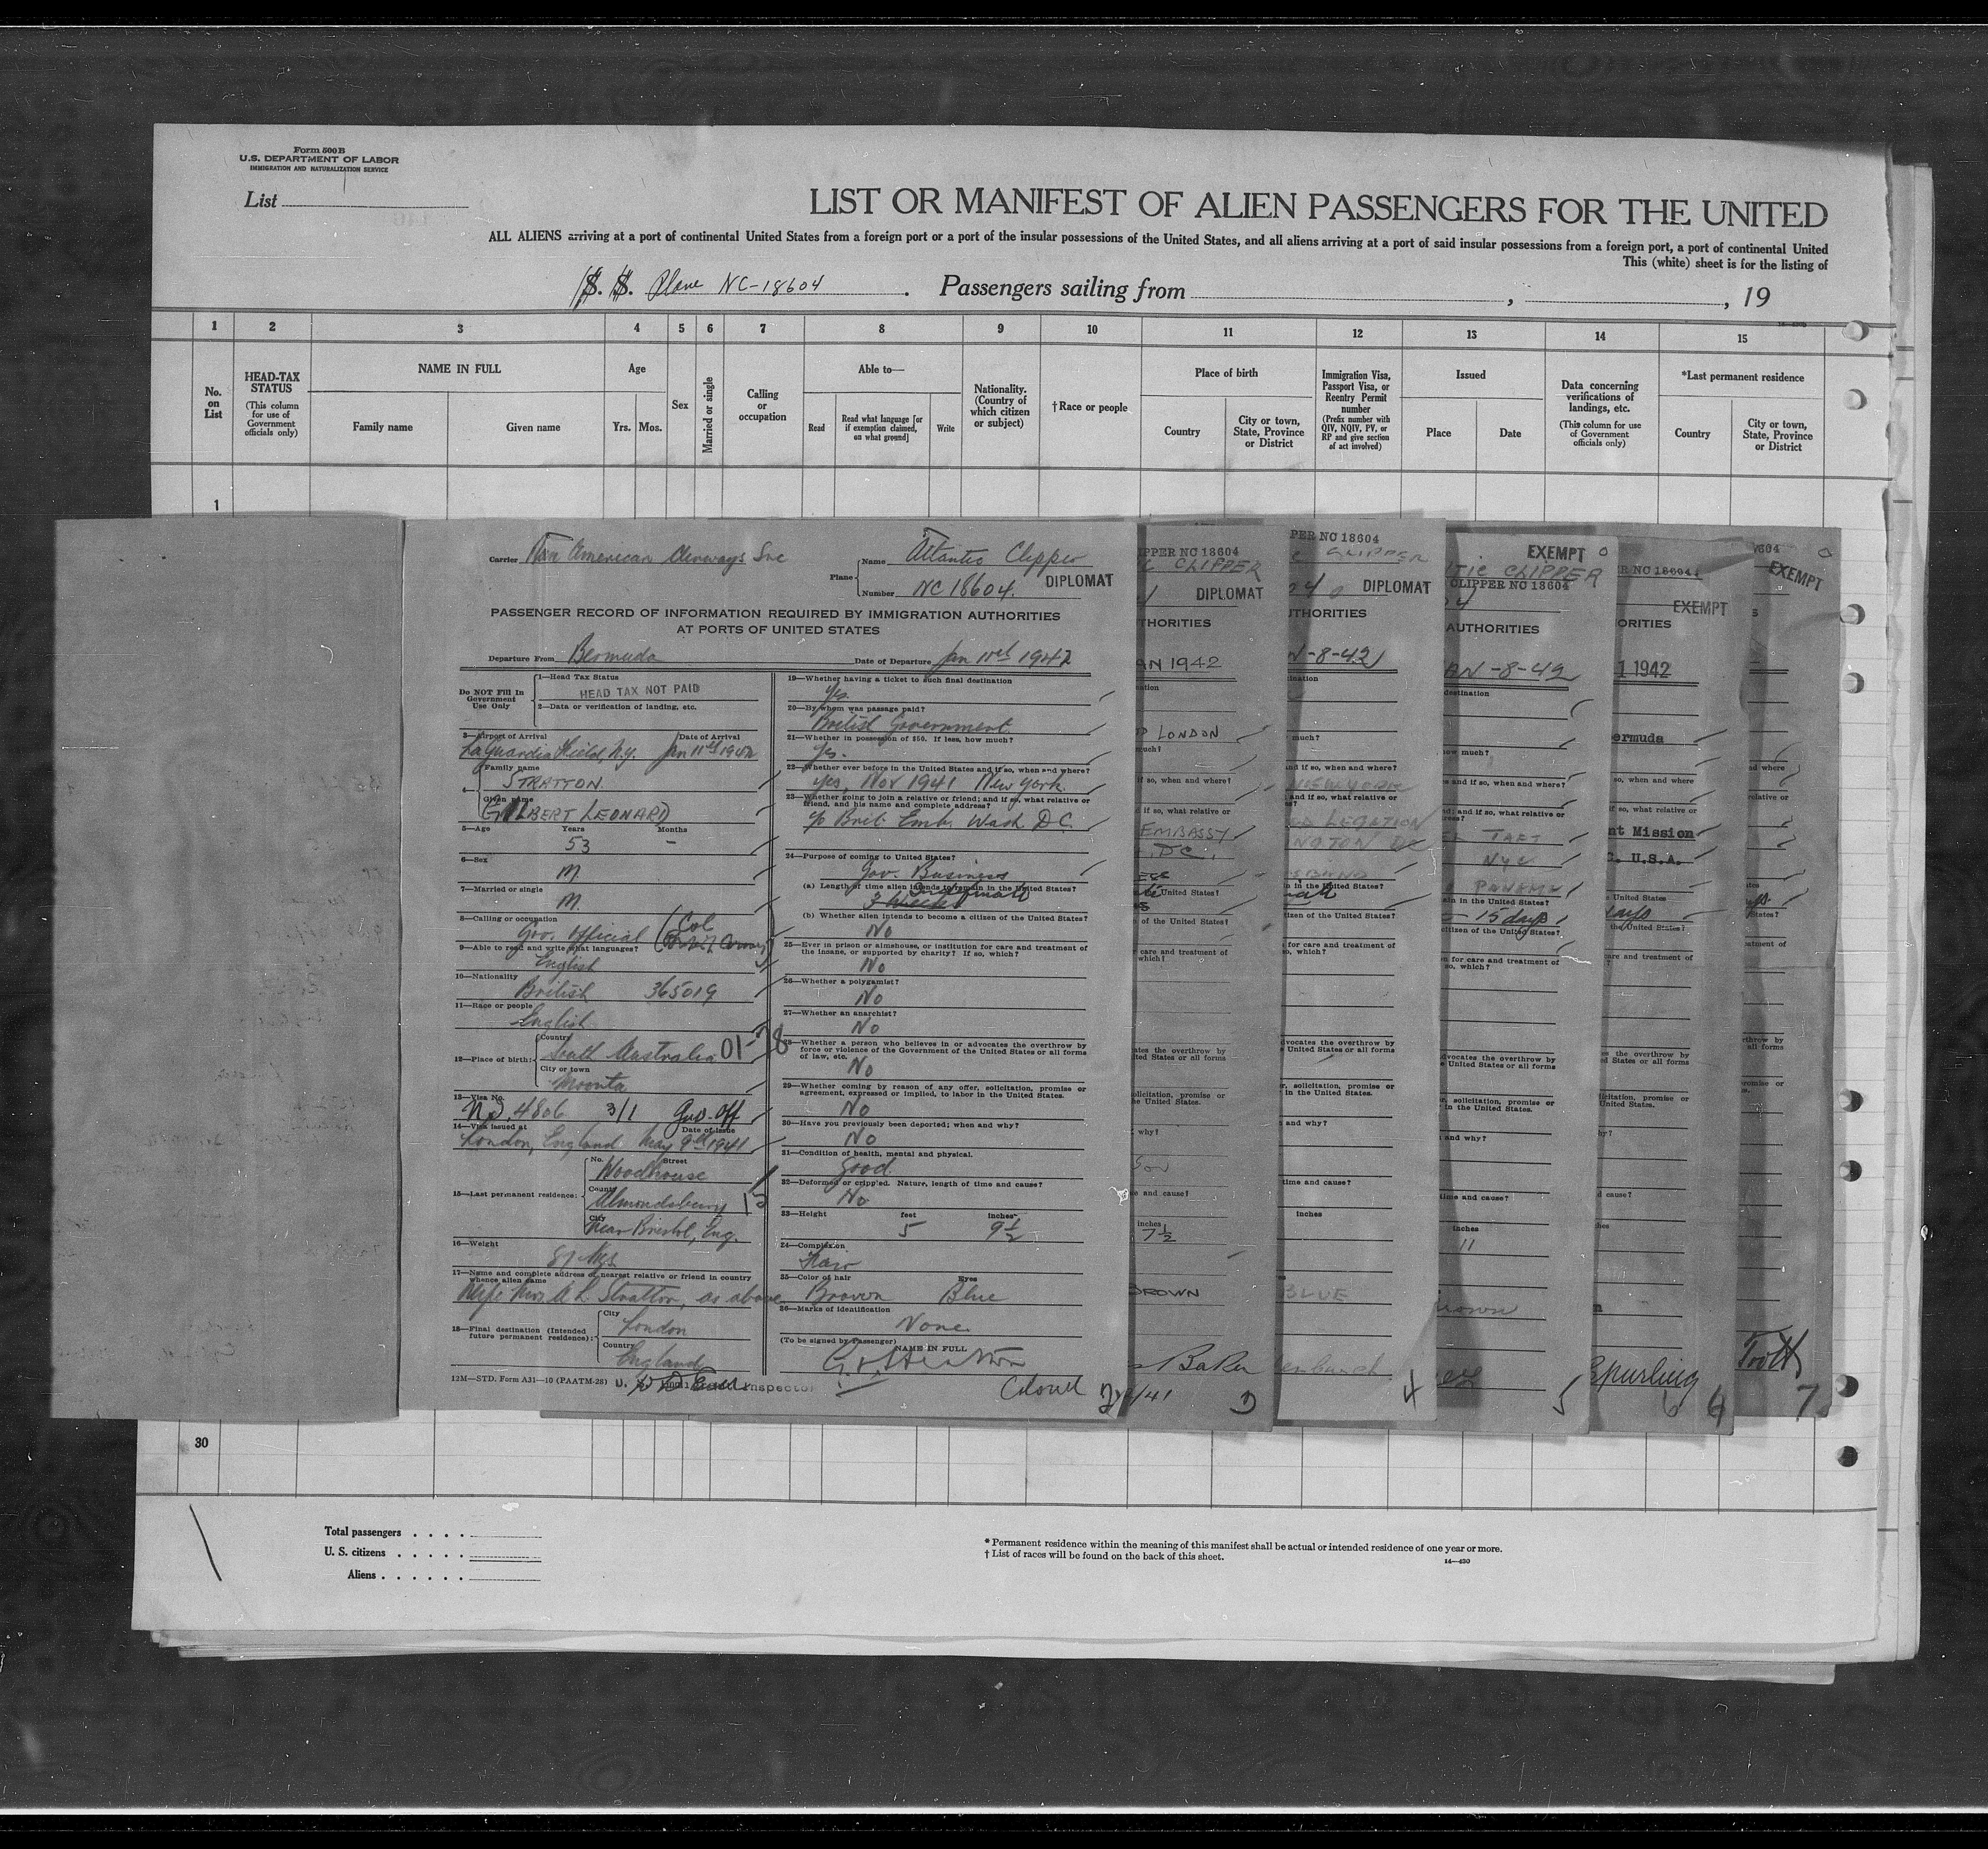 Form 500B
U.S. DEPARTMENT OF LABOR
IMMIGRATION AND NATURALIZATION SERVICE
List
LIST OR MANIFEST OF ALIEN PASSENGERS FOR THE UNITED
ALL ALIENS arriving at a port of continental United States from a foreign port or a port of the insular possessions of the United States, and all aliens arriving at a port of said insular possessions from a foreign port, a port of continental United
This (white) sheet is for the listing of
S. S. Plane NC-18604. Passengers sailing from , , 19
1 2 3 4 5 6 7 8 9 10 11 12 13 14 15
No. on List
HEAD-TAX STATUS
(This column for use of Government officials only)
NAME IN FULL
Family name
Given name
Age
Yrs. Mos.
Sex
Married or single
Calling or occupation
Able to—
Read
Read what language [or if exemption claimed, on what ground]
Write
Nationality. (Country of which citizen or subject)
†Race or people
Place of birth
Country
City or town, State, Province or District
Immigration Visa, Passport Visa, or Reentry Permit number
(Prefix number with QIV, NQIV, PV, or RP and give section of act involved)
Issued
Place
Date
Data concerning verifications of landings, etc.
(This column for use of Government officials only)
*Last permanent residence
Country
City or town, State, Province or District
1
Carrier Pan American Airways Inc
Plane Name Atlantic Clipper
Number NC 18604.
DIPLOMAT
PASSENGER RECORD OF INFORMATION REQUIRED BY IMMIGRATION AUTHORITIES
AT PORTS OF UNITED STATES
Departure From Bermuda
Date of Departure Jan 11th 1942
Do NOT Fill In Government Use Only
1—Head Tax Status
HEAD TAX NOT PAID
2—Data or verification of landing, etc.
3—Airport of Arrival Date of Arrival
LaGuardia Field, N.Y. Jan 11th 1942
4— Family name
STRATTON
Given name
GILBERT LEONARD
5—Age Years Months
53 –
6—Sex
M.
7—Married or single
M.
8—Calling or occupation
Gov. Official (Col
9—Able to read and write what languages?
English
10—Nationality
British 365019
11—Race or people
English
12—Place of birth: Country
South Australia
City or town
Moonta
13—Visa No.
4806 3/1 Gov. Off
14—Visa issued at Date of Issue
London, England May 9th 1941
15—Last permanent residence: No. Street
Woodhouse
County
Almondsbury
City
Near Bristol, Eng.
16—Weight
17—Name and complete address of nearest relative or friend in country whence alien came
Wife Mrs Stratton, as above
18—Final destination (Intended future permanent residence): City
London
Country
England
12M—STD. Form A31—10 (PAATM-28)
19—Whether having a ticket to such final destination
Yes
20—By whom was passage paid?
British Government
21—Whether in possession of $50. If less, how much?
Yes.
22—Whether ever before in the United States and if so, when and where?
Yes, Nov 1941 New York.
23—Whether going to join a relative or friend; and if so, what relative or friend, and his name and complete address?
c/o Brit. Emb. Wash. D.C.
24—Purpose of coming to United States?
Gov. Business
(a) Length of time alien intends to remain in the United States?
(b) Whether alien intends to become a citizen of the United States?
No
25—Ever in prison or almshouse, or institution for care and treatment of the insane, or supported by charity? If so, which?
No
26—Whether a polygamist?
No
27—Whether an anarchist?
No
28—Whether a person who believes in or advocates the overthrow by force or violence of the Government of the United States or all forms of law, etc.
No
29—Whether coming by reason of any offer, solicitation, promise or agreement, expressed or implied, to labor in the United States.
No
30—Have you previously been deported; when and why?
No
31—Condition of health, mental and physical.
Good
32—Deformed or crippled. Nature, length of time and cause?
No
33—Height feet inches
5 9½
34—Complexion
Fair
35—Color of hair Eyes
Brown Blue
36—Marks of identification
None
(To be signed by Passenger)
NAME IN FULL
Colonel
PPER NC 18604
CLIPPER
DIPLOMAT
THORITIES
AN 1942
LONDON
EMBASSY
D.C.
inches
7½
BROWN
Baker
3
PER NC 18604
CLIPPER
DIPLOMAT
THORITIES
N-8-42
LEGATION
inches
BLUE
4
EXEMPT
TIC CLIPPER
CLIPPER NC 18604
AUTHORITIES
AN-8-42
TAFT
NYC
PANAMA
15 days
inches
11
Brown
5
R NC 18604
EXEMPT
ORITIES
1 1942
ermuda
nt Mission
C. U.S.A.
days
Spurling
6
EXEMPT
Trott
7
30
Total passengers
U. S. citizens
Aliens
* Permanent residence within the meaning of this manifest shall be actual or intended residence of one year or more.
† List of races will be found on the back of this sheet.
14—430